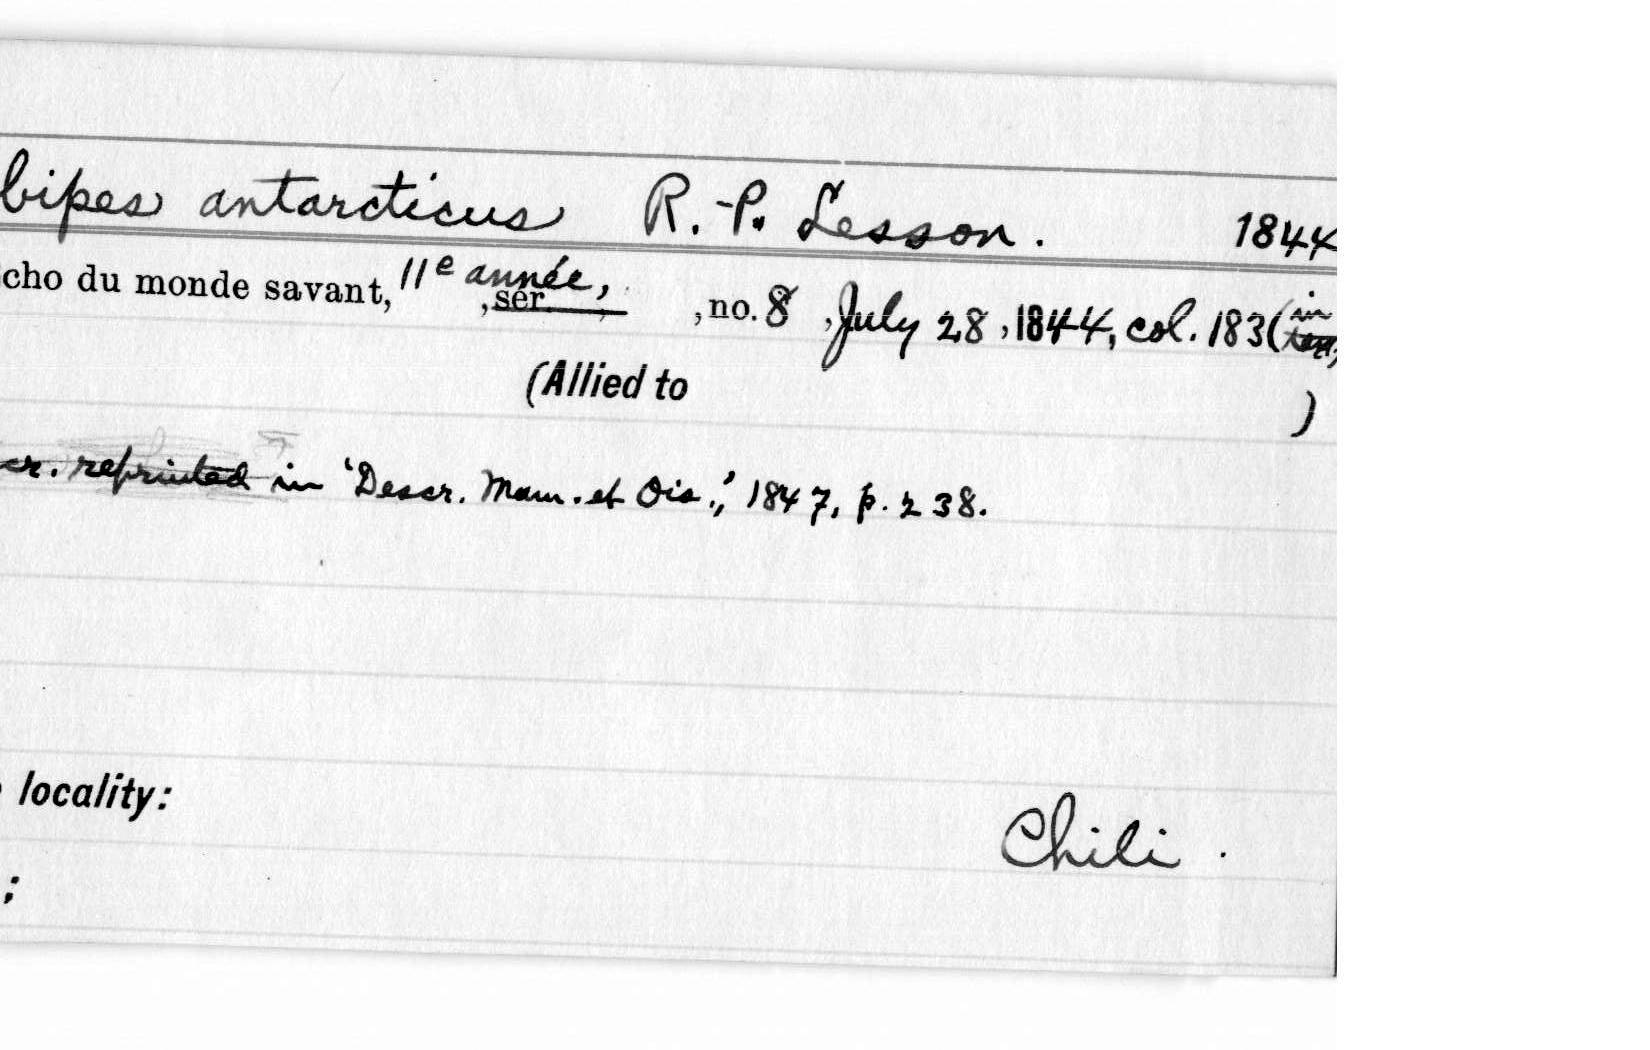 bipes antarcticus R.-P. Lesson. 1844
cho du monde savant, 11e année, , ser. , , no. 8 , July 28 , 1844, col. 183 (in text)
(Allied to )
cr. reprinted in 'Descr. Mam. et Ois.,' 1847, p. 238.
locality:
Chili .
;